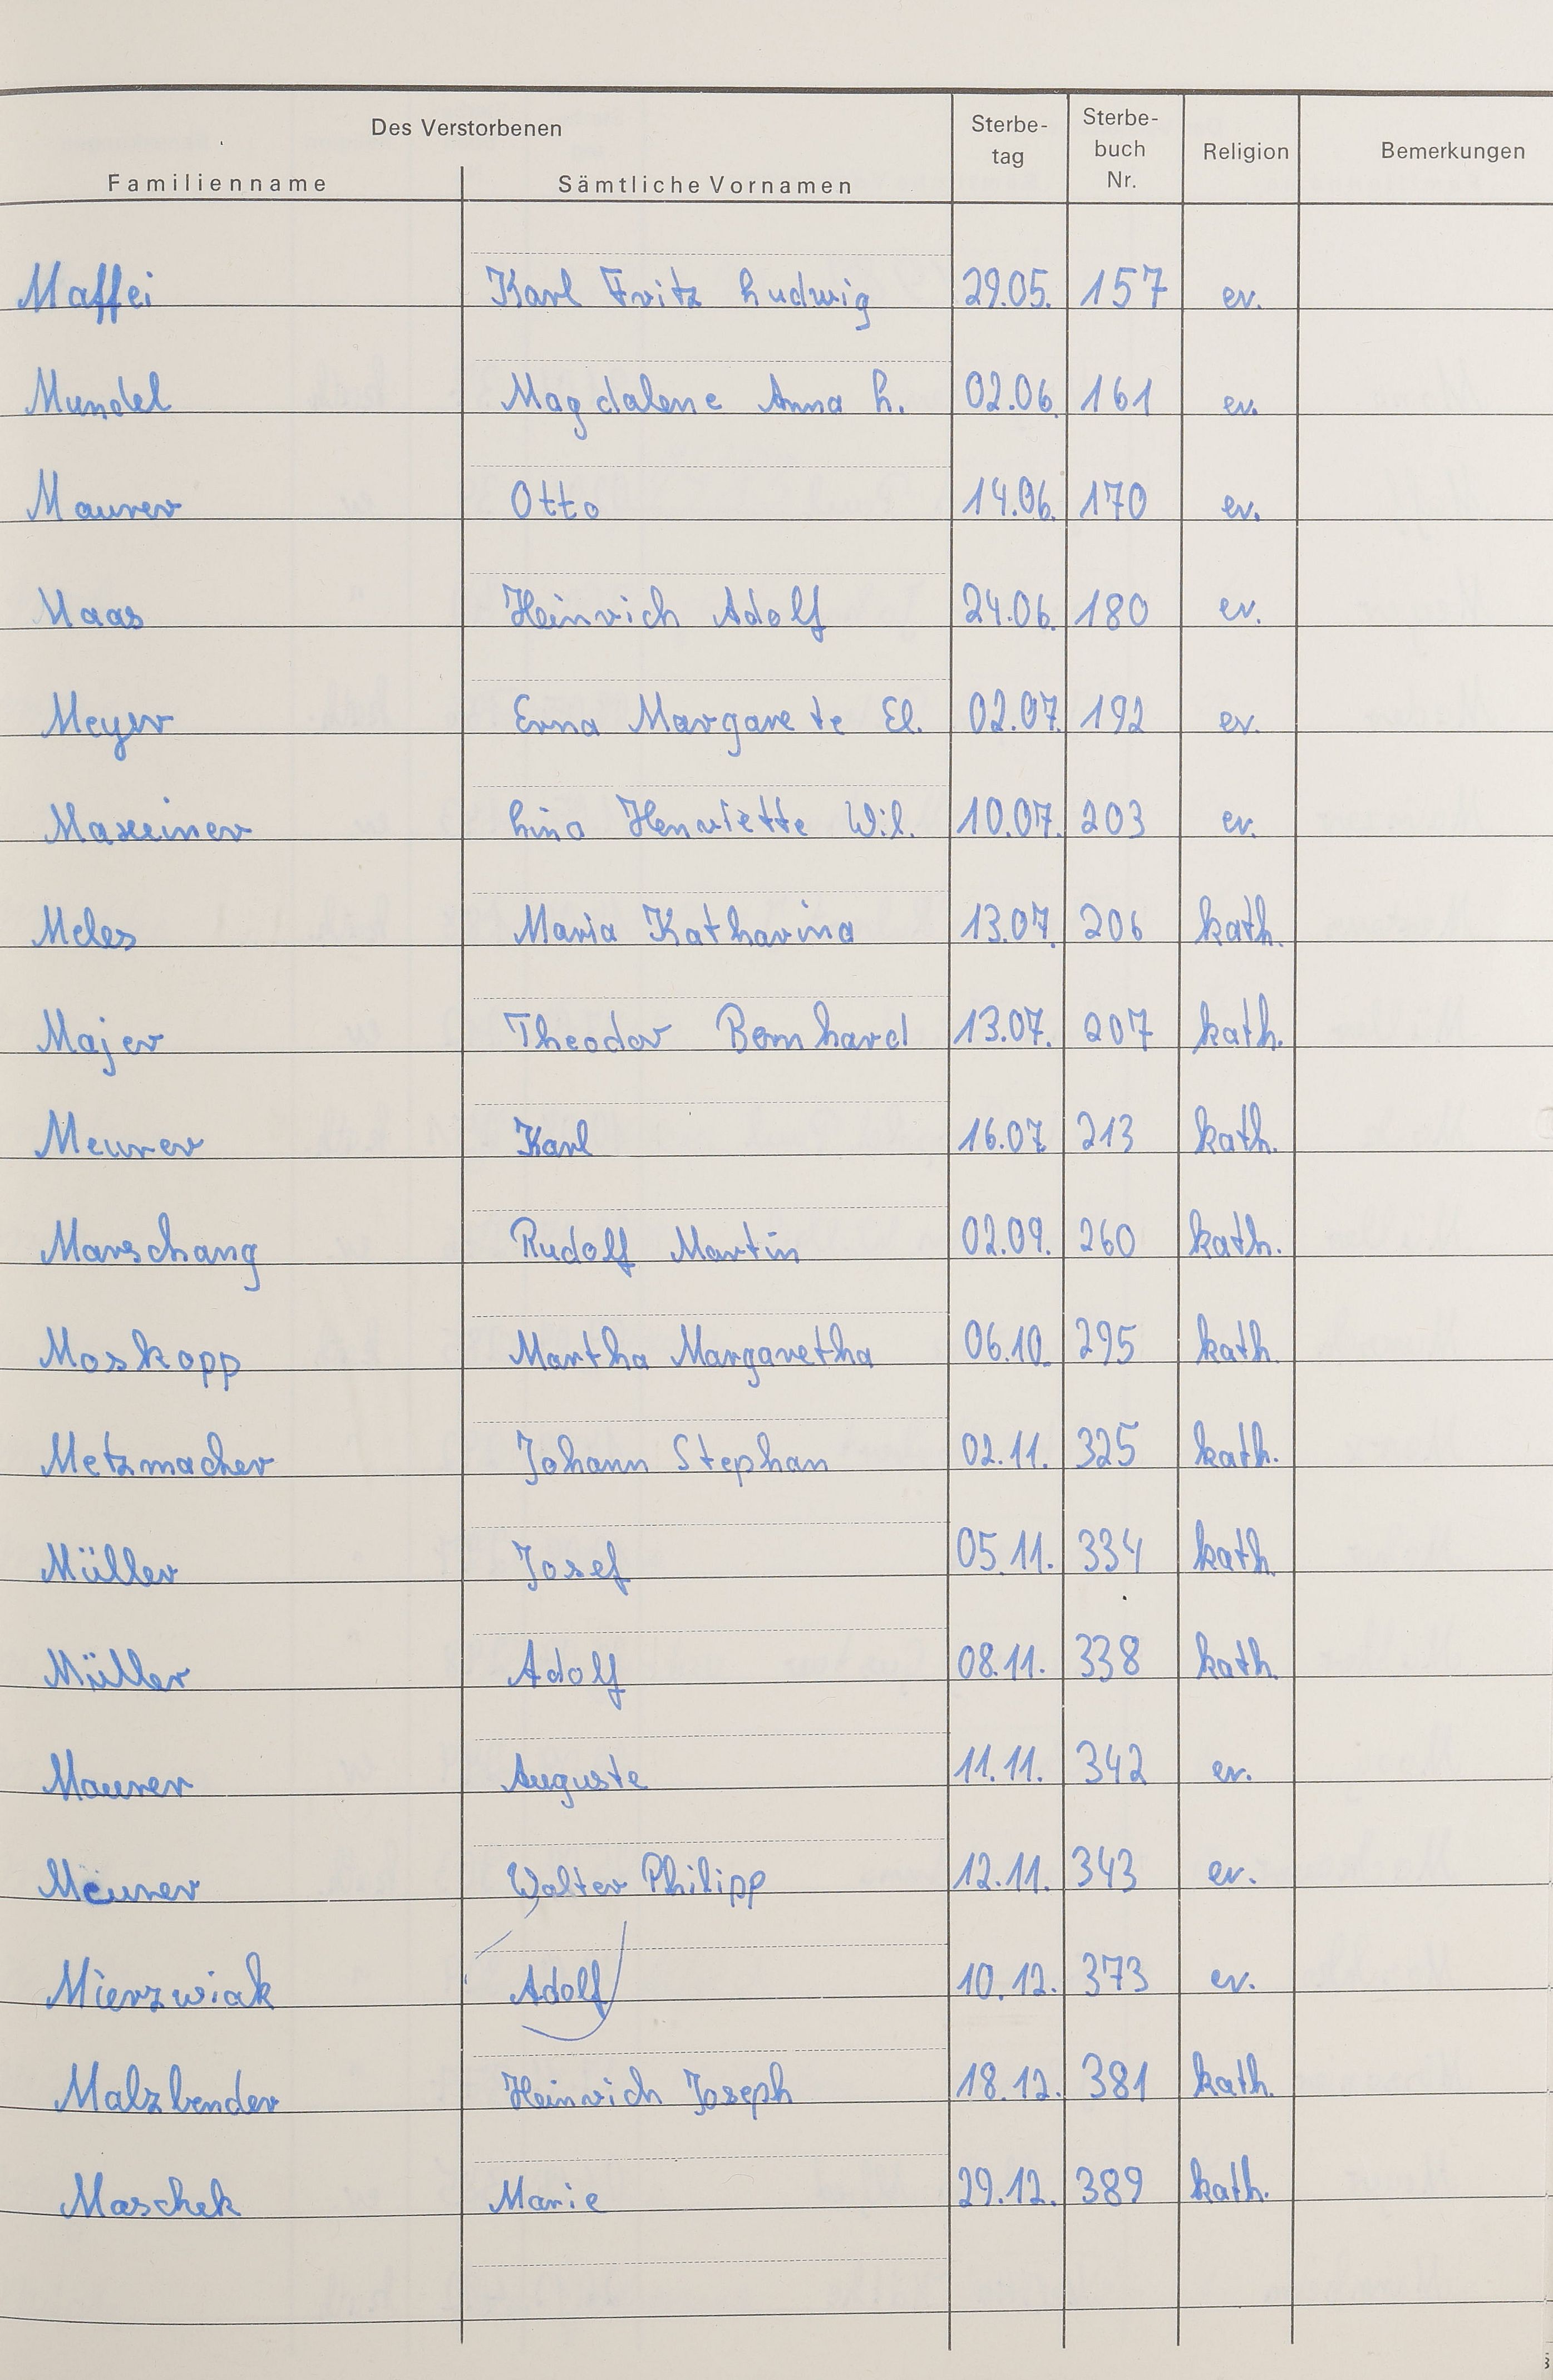 Des Verstorbenen
Familienname Sämtliche Vornamen Sterbe-tag Sterbe-buch Nr. Religion Bemerkungen
Maffei Karl Fritz Ludwig 29.05. 157 ev.
Mundel Magdalene Anna L. 02.06. 161 ev.
Maurer Otto 14.06. 170 ev.
Maas Heinrich Adolf 24.06. 180 ev.
Meyer Erna Margarete El. 02.07. 192 ev.
Maxeiner Lina Henriette Wil. 10.07. 203 ev.
Meles Maria Katharina 13.07. 206 kath.
Majer Theodor Bernhard 13.07. 207 kath.
Meurer Karl 16.07 213 kath.
Marschang Rudolf Martin 02.09. 260 kath.
Moskopp Martha Margaretha 06.10. 295 kath.
Metzmacher Johann Stephan 02.11. 325 kath.
Müller Josef 05.11. 334 kath.
Müller Adolf 08.11. 338 kath.
Maurer Auguste 11.11. 342 ev.
Meurer Walter Philipp 12.11. 343 ev.
Mierzwiak Adolf 10.12. 373 ev.
Malzbender Heinrich Joseph 18.12. 381 kath.
Maschek Marie 29.12. 389 kath.